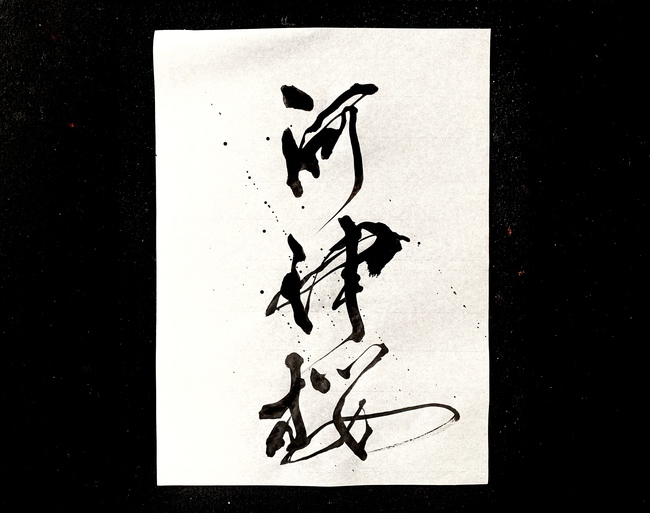 河津桜